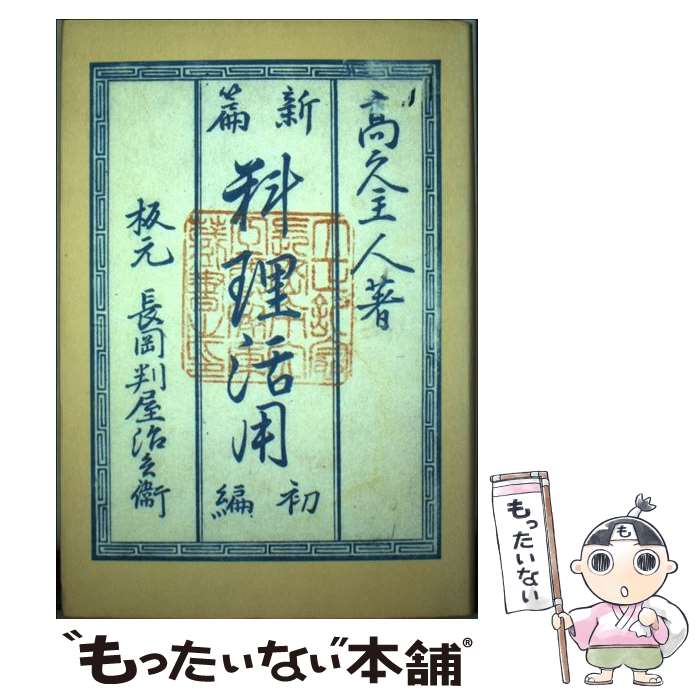 高久主人著
新篇
料理活用
初編
板元 長岡判屋治兵衛
もったいない
も
"もったいない"本舗®